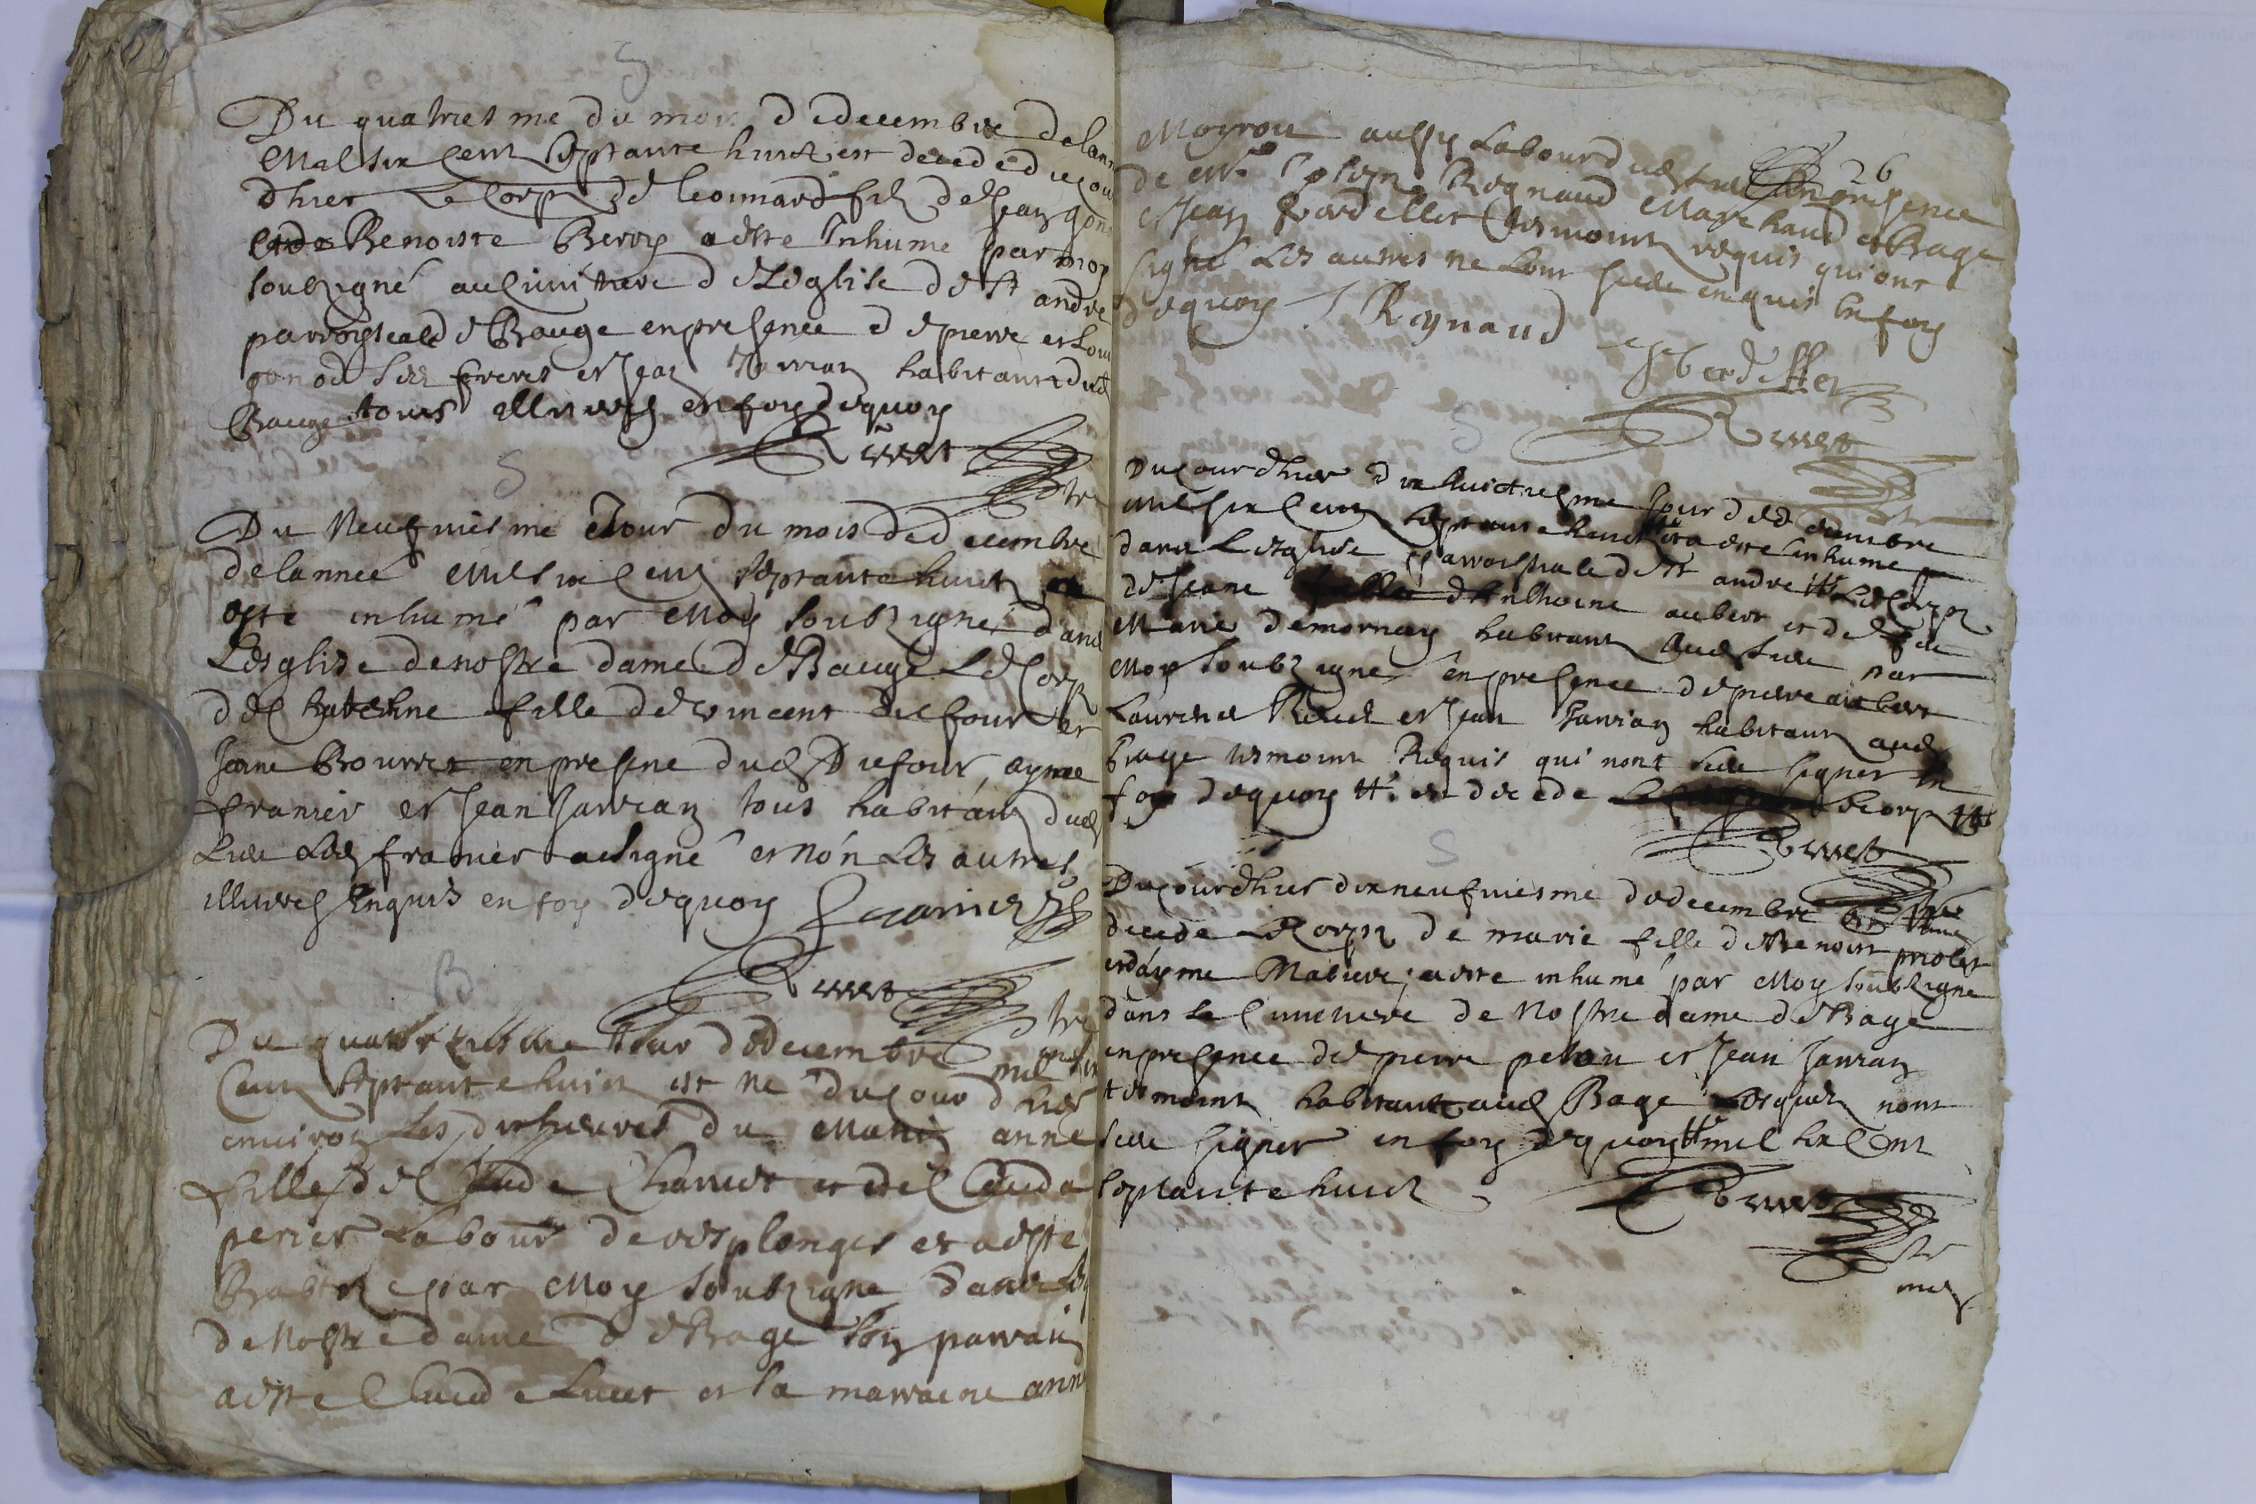 S
Du quatriesme du mois de decembre de lann
Mil six Cent septante huict est decedé du jour
dhier Le Corps de leonnard filz de Jean gon
et de Benoiste Beroy a este Inhumé par moy
soubzigné au Cimittiere de Leglise de St andre
parroisialle de Baugé en presence de pierre et Loui
gonod ses freres et Jean Janrian habitants dud
Baugé tous illiterez en foy de quoy
Rivvet
S
Du Neufviesme Jour du mois de decembre
de lannee Mil six Cent septante huict
este inhumé par Moy soubzigné dans
Lesglise de nostre dame de Baugé Le Corps
de Catherine fille de vincent du four et
Jeane Bourret en presence dud Dufour, ayme
franier et Jean Janrian tous habitans dud
Lieu Led franier a signé et non Les autres
illiterez Enquis en foy de quoy franier
Rivvet
B
Du quatorziesme Jour de decembre mil six
Cent septante huict est né du jour dhier
environ Les dix heures du Matin anne
fille de Claude Charvet et de Claude
perier Labour de vesplonges et a este
Babtizé par Moy soubzigné dans Leg
de Nostre dame de Bagé son parrain
a este Claude Luiet et sa marraine anne
26
Moyron aussy Labour dud lieu En presence
de Mre Regnaud Marchand de Bage
et Jean bordellet tesmoint requis qui ont
signé Les autres ne Lont sceu enquis En foy
de quoy J Reynaud
Rivvet
S
Du jourdhier dix huictiesme Jour de decembre
mil six Cent septante huict a este Inhumé
dans Lesglise parroissiale de St andre Le Corps
de Jeane danthoine aubert et de
Marie demornay habitant dud Lieu par
Moy soubzigné en presence de pierre aubert
Laurent et Jean Janrian habitant aud
Bage tesmoint Requis qui nont sceu signer En
foy de quoy est decede Le Corps
Rivvet
S
Du jourdhier dix neufviesme de decembre
decede Le Corps de marie fille de Benoist prolet
et dayme Maliere, a este inhumé par Moy soubzigne
dans Le Cimittiere de Nostre dame de Bage
en presence de pierre et Jean Janrian
tesmoint habitant aud Bage Lesquelz nont
sceu signer en foy de quoy mil six Cent
septante huict
Rivvet